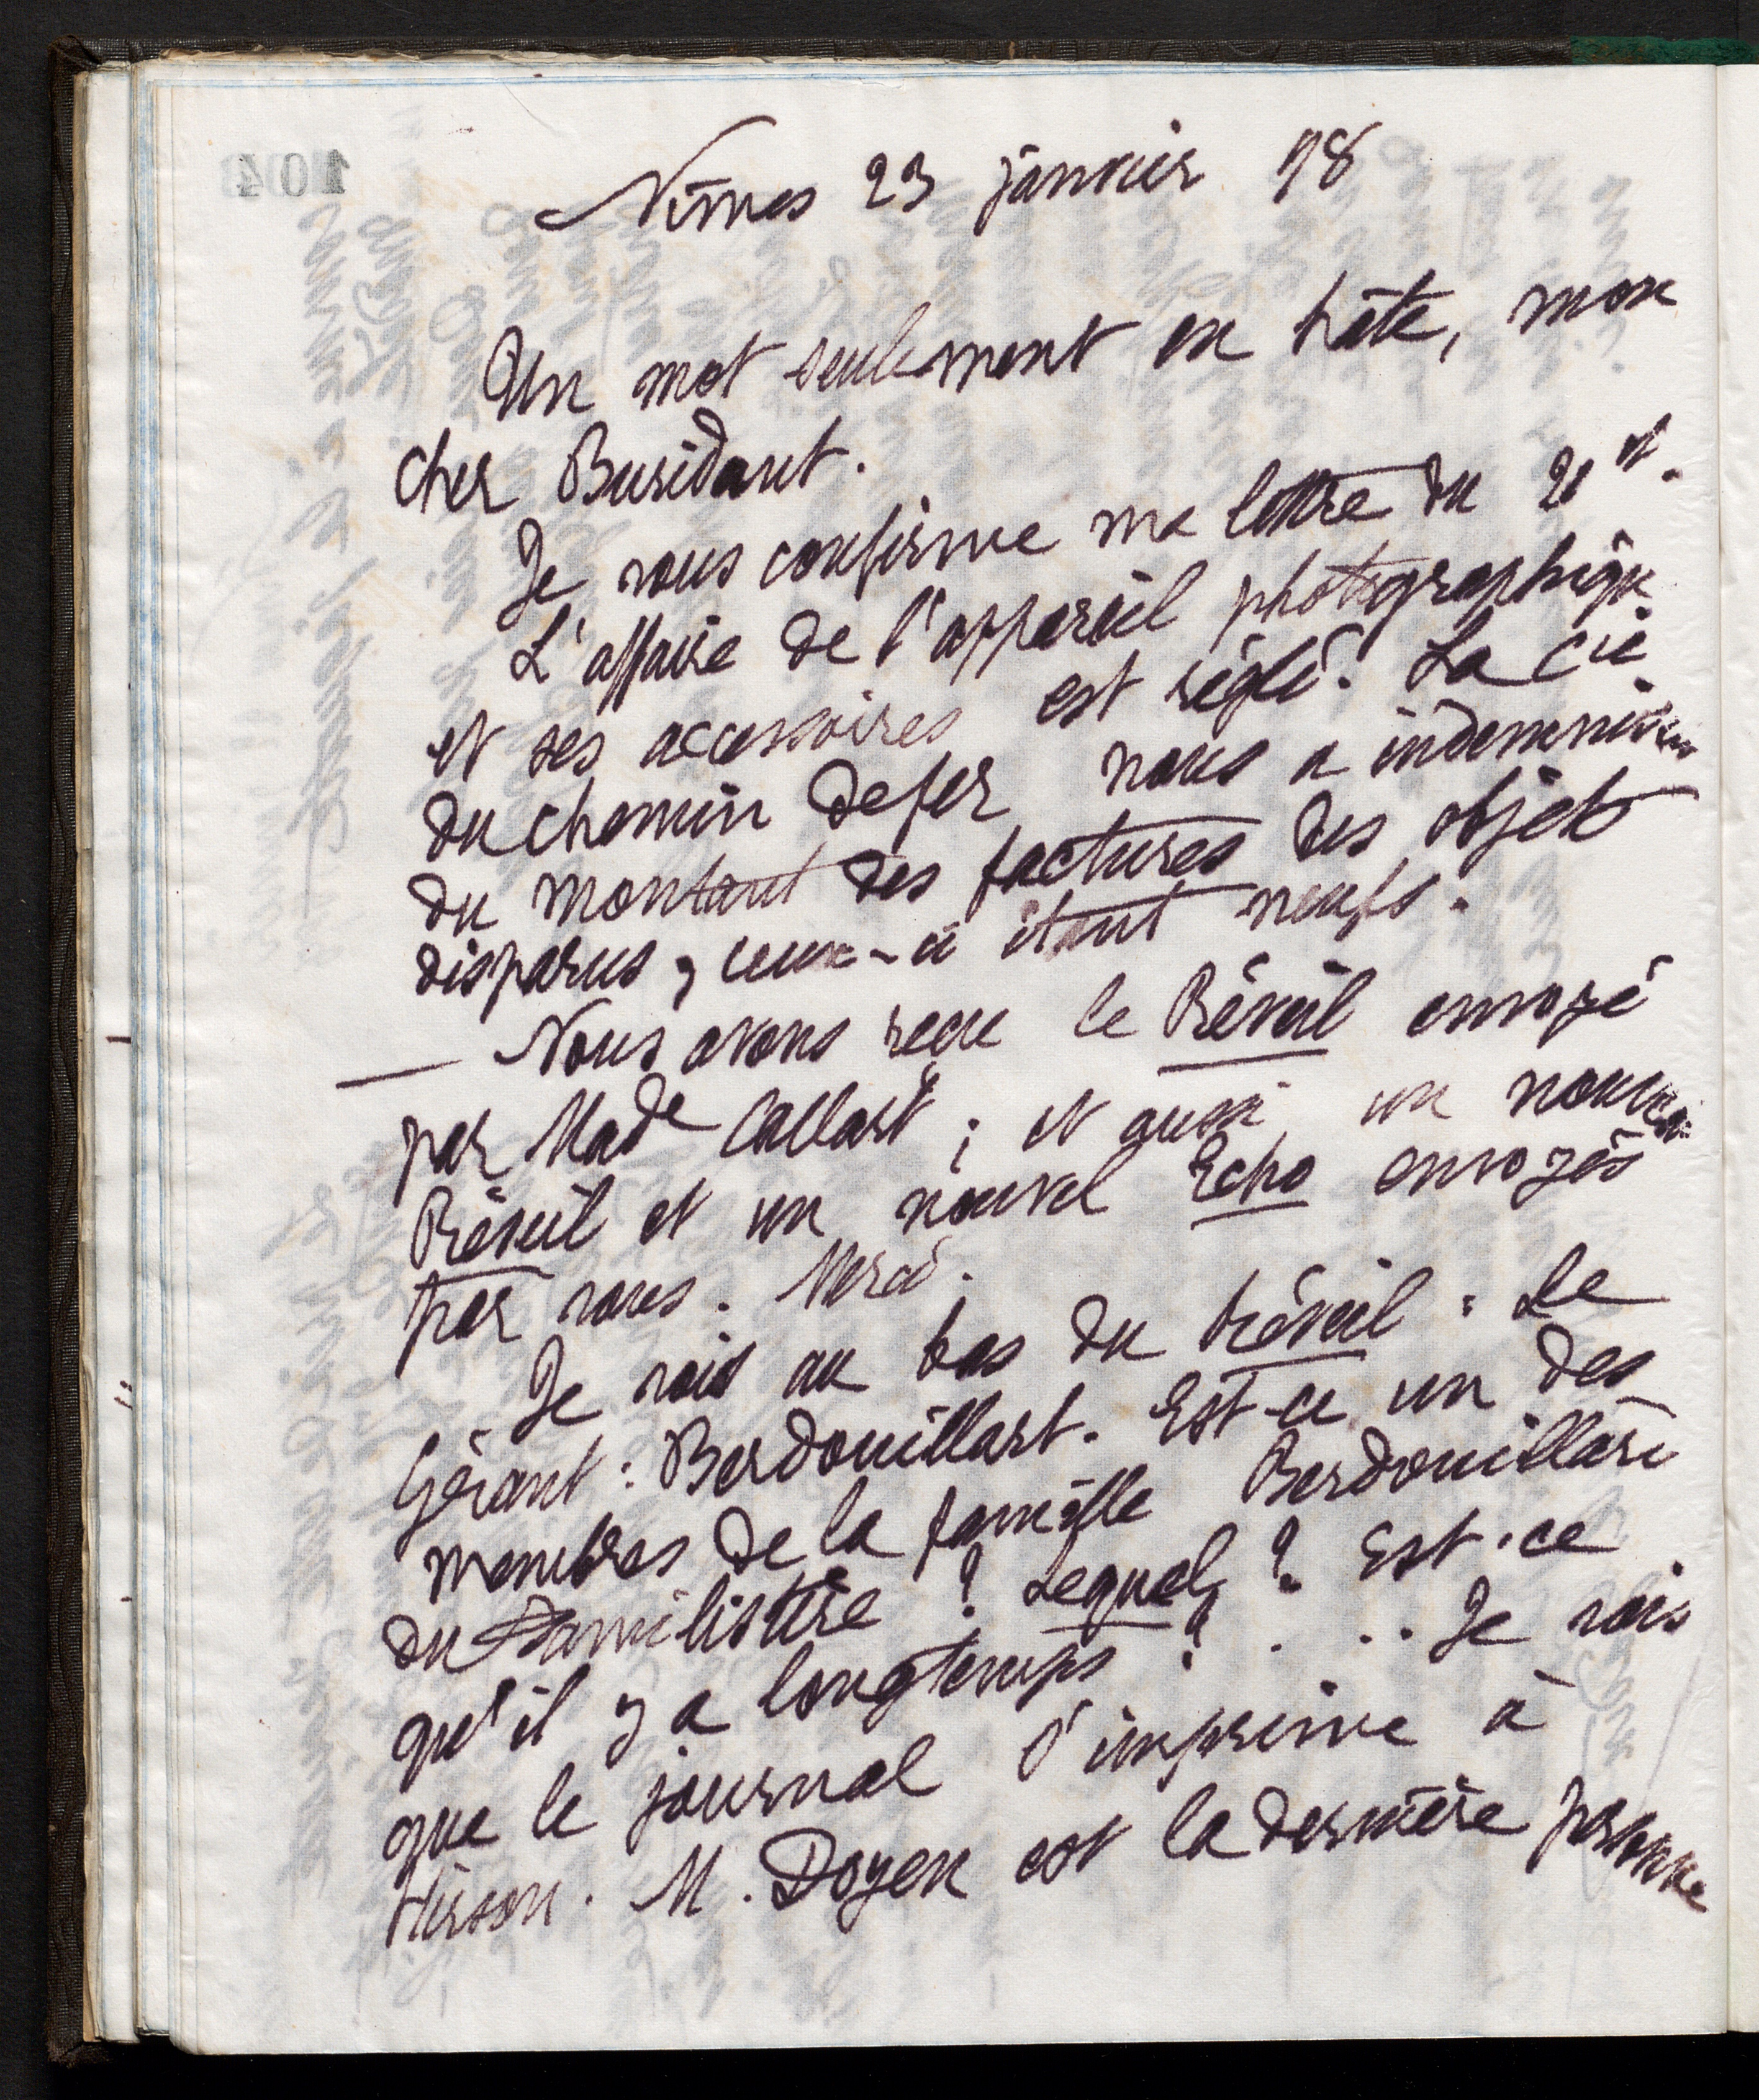 104
Nîmes 23 janvier 98
Un mot seulement en hâte, mon
cher Buridant.
Je vous confirme ma lettre du 20 ct.
L'affaire de l'appareil photographique
et ses accessoires est réglé. La Cie
du chemin de fer nous a indemnisés
du montant des factures des objets
disparus, ceux-ci étant neufs.
— Nous avons reçu le Réveil envoyé
par Made Callart ; et aussi un nouveau
Réveil et un nouvel Echo envoyés
par vous. Merci.
Je vois au bas du Réveil : Le
Gérant : Berdouillart. Est-ce un des
membres de la famille Berdouillart
du Familistère ? Lequel ? Est-ce
qu'il y a longtemps ? ... Je vois
que le journal s'imprime à
Hirson. M. Doyen est la dernière personne